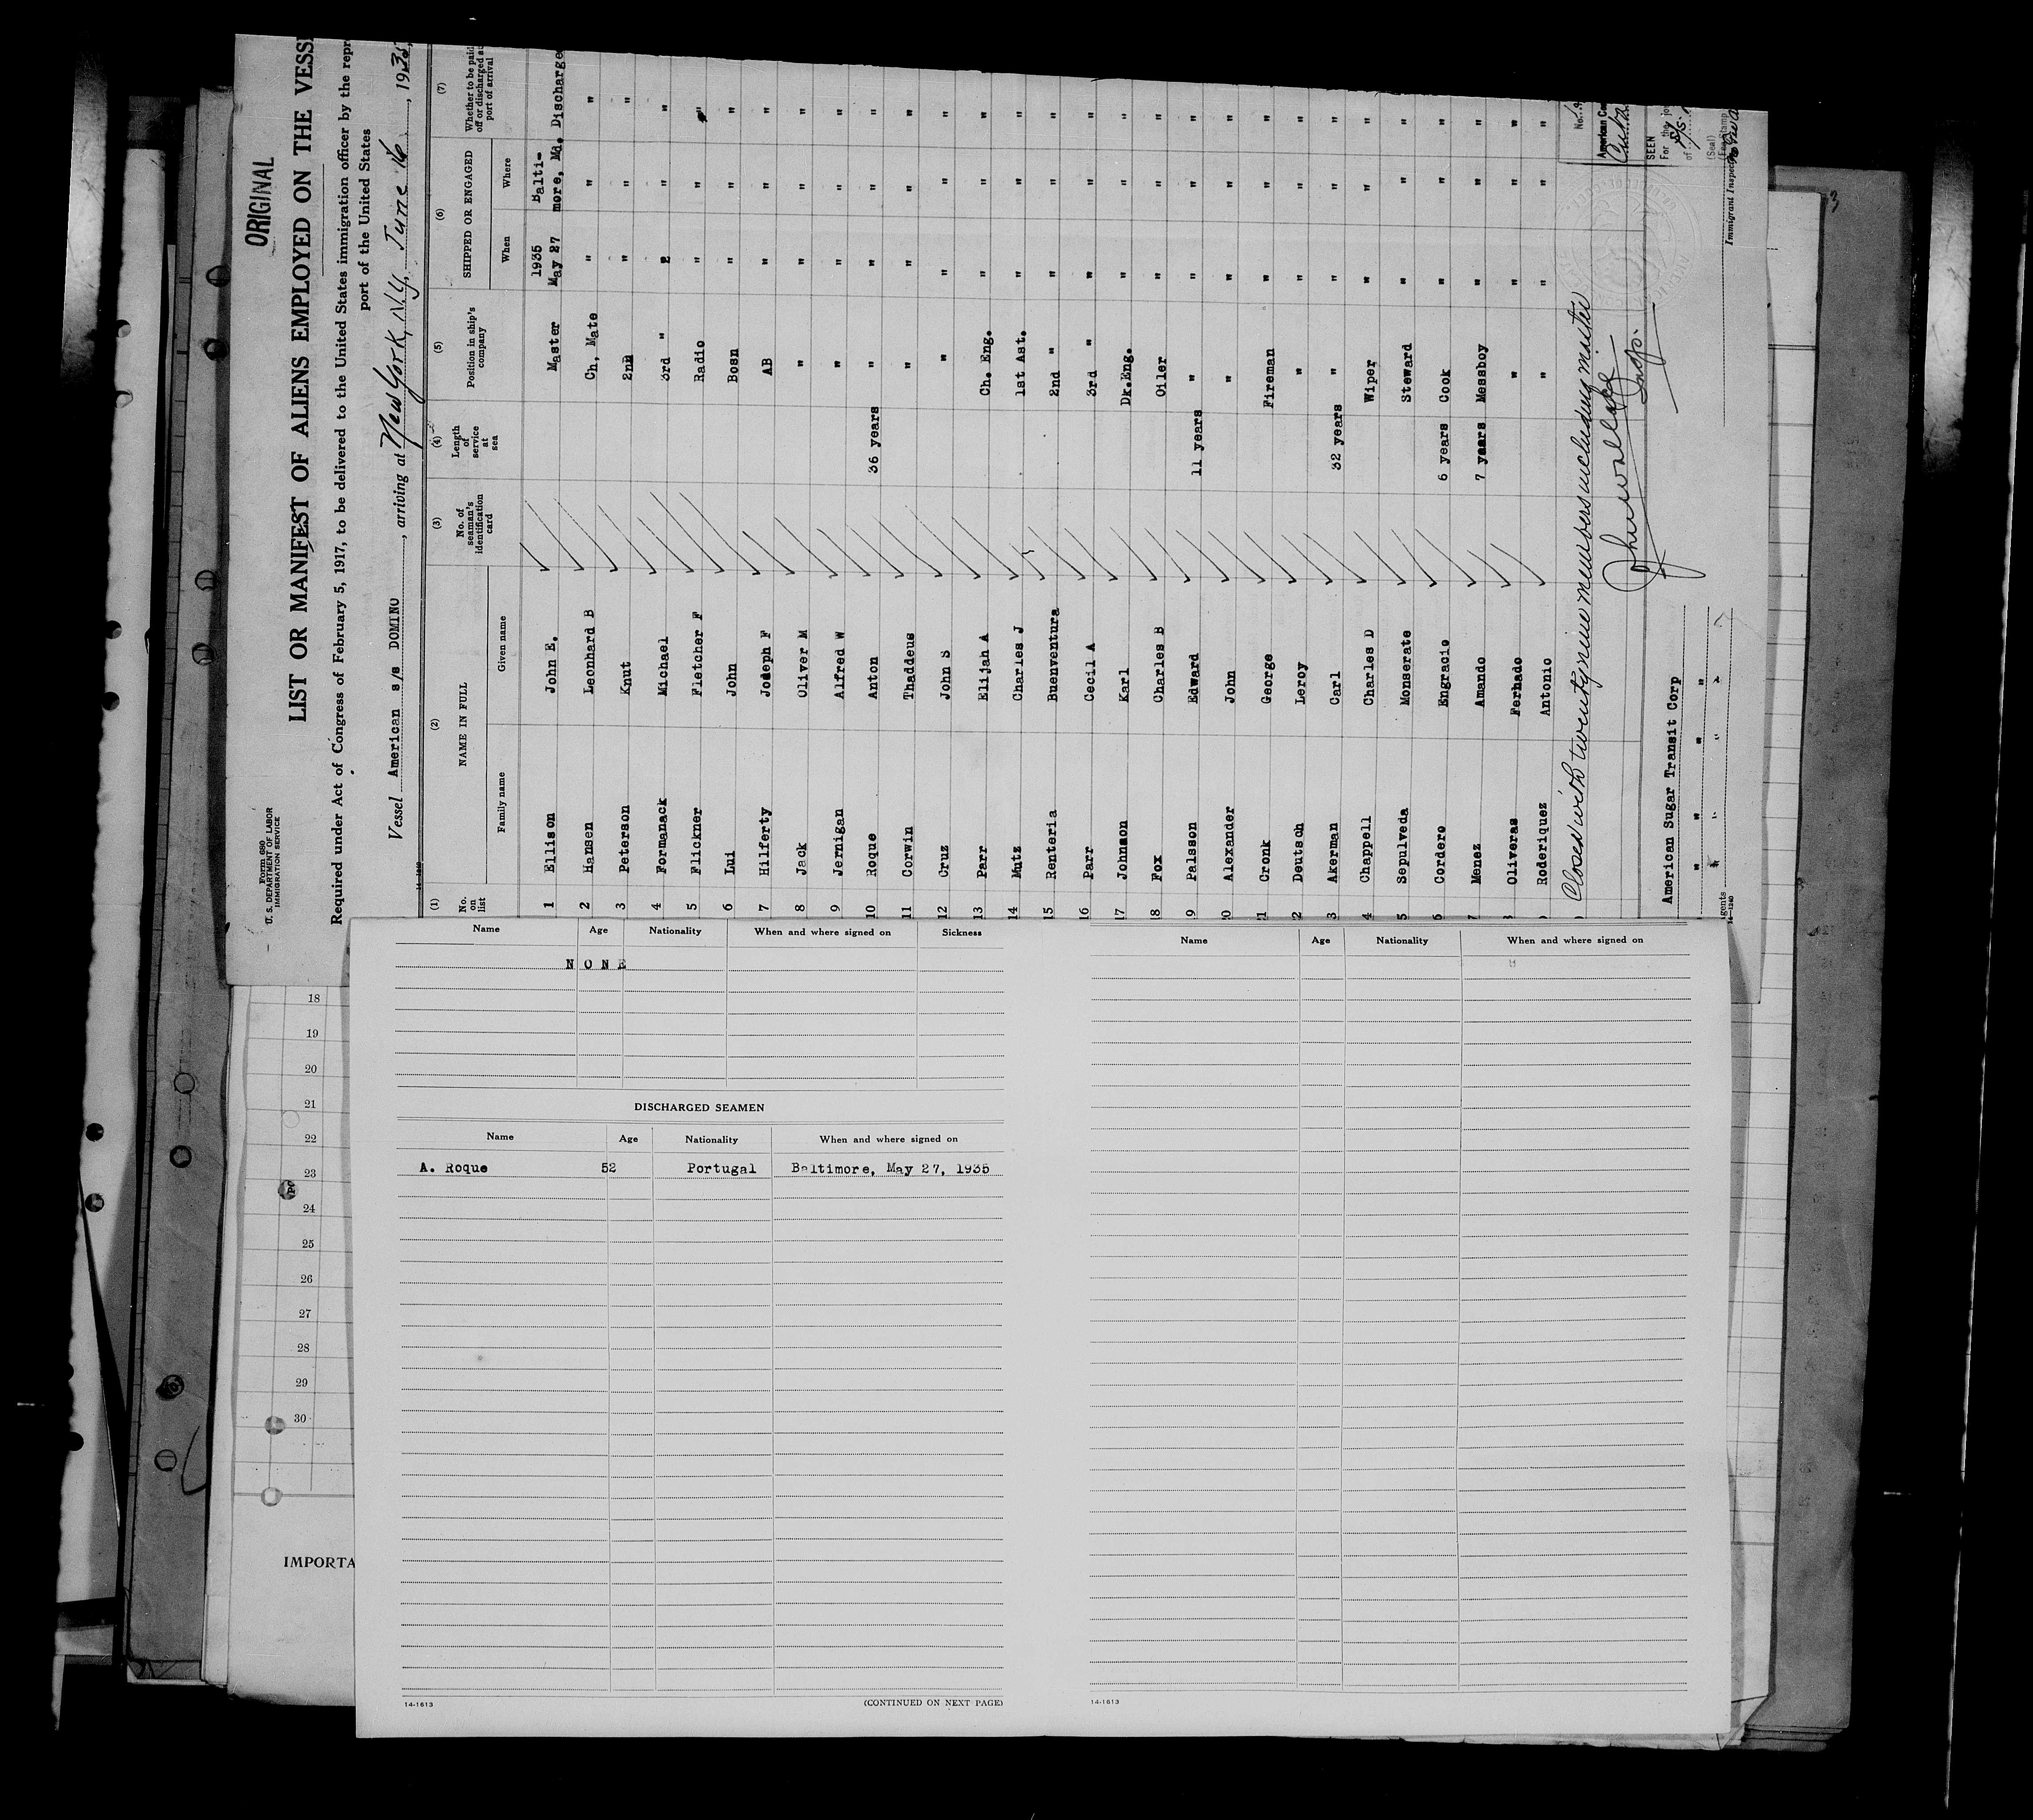 ORIGINAL
Form 680
U. S. DEPARTMENT OF LABOR
IMMIGRATION SERVICE
LIST OR MANIFEST OF ALIENS EMPLOYED ON THE VESS
Required under Act of Congress of February 5, 1917, to be delivered to the United States immigration officer by the repr
port of the United States
Vessel American s/s DOMINO, arriving at New York, N.Y. June 16, 1935
(1) (2) (3) (4) (5) (6) (7)
No. on list NAME IN FULL No. of seaman's identification card Length of service at sea Position in ship's company SHIPPED OR ENGAGED Whether to be paid off or discharged at port of arrival
Family name Given name When Where
1935 Balti-
1 Ellison John E. Master May 27 more, Md. Discharge
2 Hansen Leonhard B Ch, Mate " " "
3 Peterson Knut 2nd " " "
4 Formanack Michael 3rd " " " "
5 Flickner Fletcher F Radio " " "
6 Lui John Bosn " " "
7 Hilferty Joseph F AB " " "
8 Jack Oliver M " " " "
9 Jernigan Alfred W " " " "
10 Roque Anton 36 years " " " "
11 Corwin Thaddeus " " " "
12 Cruz John S " " " "
13 Parr Elijah A Ch. Eng. " " "
14 Mutz Charles J 1st Ast. " " "
15 Renteria Buenventura 2nd " " " "
16 Parr Cecil A 3rd " " " "
17 Johnson Karl Dk.Eng. " " "
18 Fox Charles B Oiler " " "
9 Palsson Edward 11 years " " " "
20 Alexander John " " " "
21 Cronk George Fireman " " "
2 Deutsch Leroy " " " "
3 Akerman Carl 32 years " " " "
4 Chappell Charles D Wiper " " "
5 Sepulveda Monserate Steward " " "
6 Cordero Engracio 6 years Cook " " "
7 Menez Amando 7 years Messboy " " "
Oliveras Ferhado " " " "
Roderiquez Antonio " " " "
Closed with twenty nine members including master
John Wallace
Insp.
American Sugar Transit Corp
" " " "
gents
14—1240
No.
American Co
SEEN
For the jo
of
(Seal)
(Fee Stamp
Immigrant Inspec
Name Age Nationality When and where signed on Sickness
N O N E
DISCHARGED SEAMEN
Name Age Nationality When and where signed on
A. Roque 52 Portugal Baltimore, May 27, 1935
14-1613
(CONTINUED ON NEXT PAGE)
Name Age Nationality When and where signed on
14-1613
18
19
20
21
22
23
24
25
26
27
28
29
30
IMPORTA